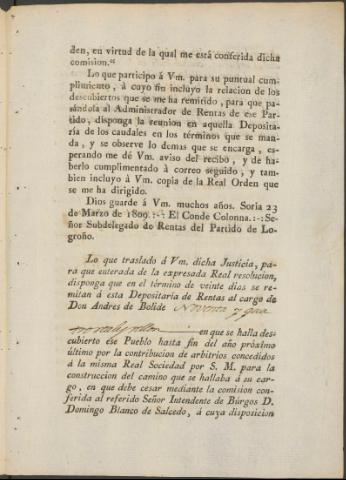 den, en virtud de la qual me está conferida dicha
comision.“
Lo que participo á Vm. para su puntual cum-
plimiento, á cuyo fin incluyo la relacion de los
descubiertos que se me ha remitido, para que pa-
sándola al Administrador de Rentas de ese Par-
tido, disponga la reunion en aquella Deposita-
ría de los caudales en los términos que se man-
da, y se observe lo demas que se encarga, es-
perando me dé Vm. aviso del recibo, y de ha-
berlo cumplimentado á correo seguido, y tam-
bien incluyo á Vm. copia de la Real Orden que
se me ha dirigido.
Dios guarde á Vm. muchos años. Soria 23
de Marzo de 1809.:-: El Conde Colonna.:-: Se-
ñor Subdelegado de Rentas del Partido de Lo-
groño.
Lo que traslado á Vm. dicha Justicia, pa-
ra que enterada de la expresada Real resolucion,
disponga que en el término de veinte dias se re-
mitan á esta Depositaría de Rentas al cargo de
Don Andres de Bolide Noventa y qua
tro reales vellon en que se halla des-
cubierto ese Pueblo hasta fin del año próximo
último por la contribucion de arbitrios concedidos
á la misma Real Sociedad por S. M. para la
construccion del camino que se hallaba á su car-
go, en que debe cesar mediante la comision con-
ferida al referido Señor Intendente de Búrgos D.
Domingo Blanco de Salcedo, á cuya disposicion